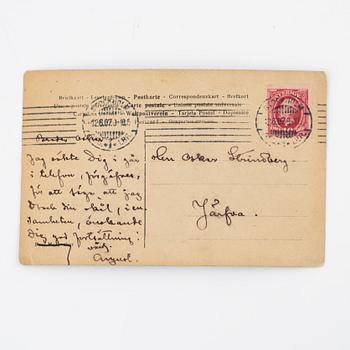 Briefkaart - Levelezőlap - Postkarte - Correspondenzkart - Brefkort
Union postale universelle
Weltpostverein - Tarjeta Postal
12.6.07
Broder Oscar
Jag sökte Dig i går
i telefon, förgäfves,
för att säga att jag
drack din skål, i en-
samheten, önskande
Dig god fortsättning!
August.
Herr Oscar Strindberg
Järfva.